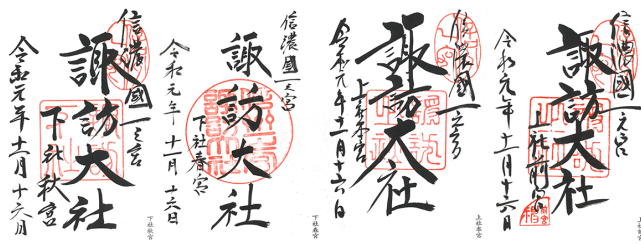 信濃國一之宮
諏訪大社
下社秋宮
令和元年十一月十六日
下社秋宮
信濃國一之宮
諏訪大社
下社春宮
令和元年十一月十六日
下社春宮
信濃國一之宮
諏訪大社
上社本宮
令和元年十一月十六日
上社本宮
信濃國一之宮
諏訪大社
上社前宮
令和元年十一月十六日